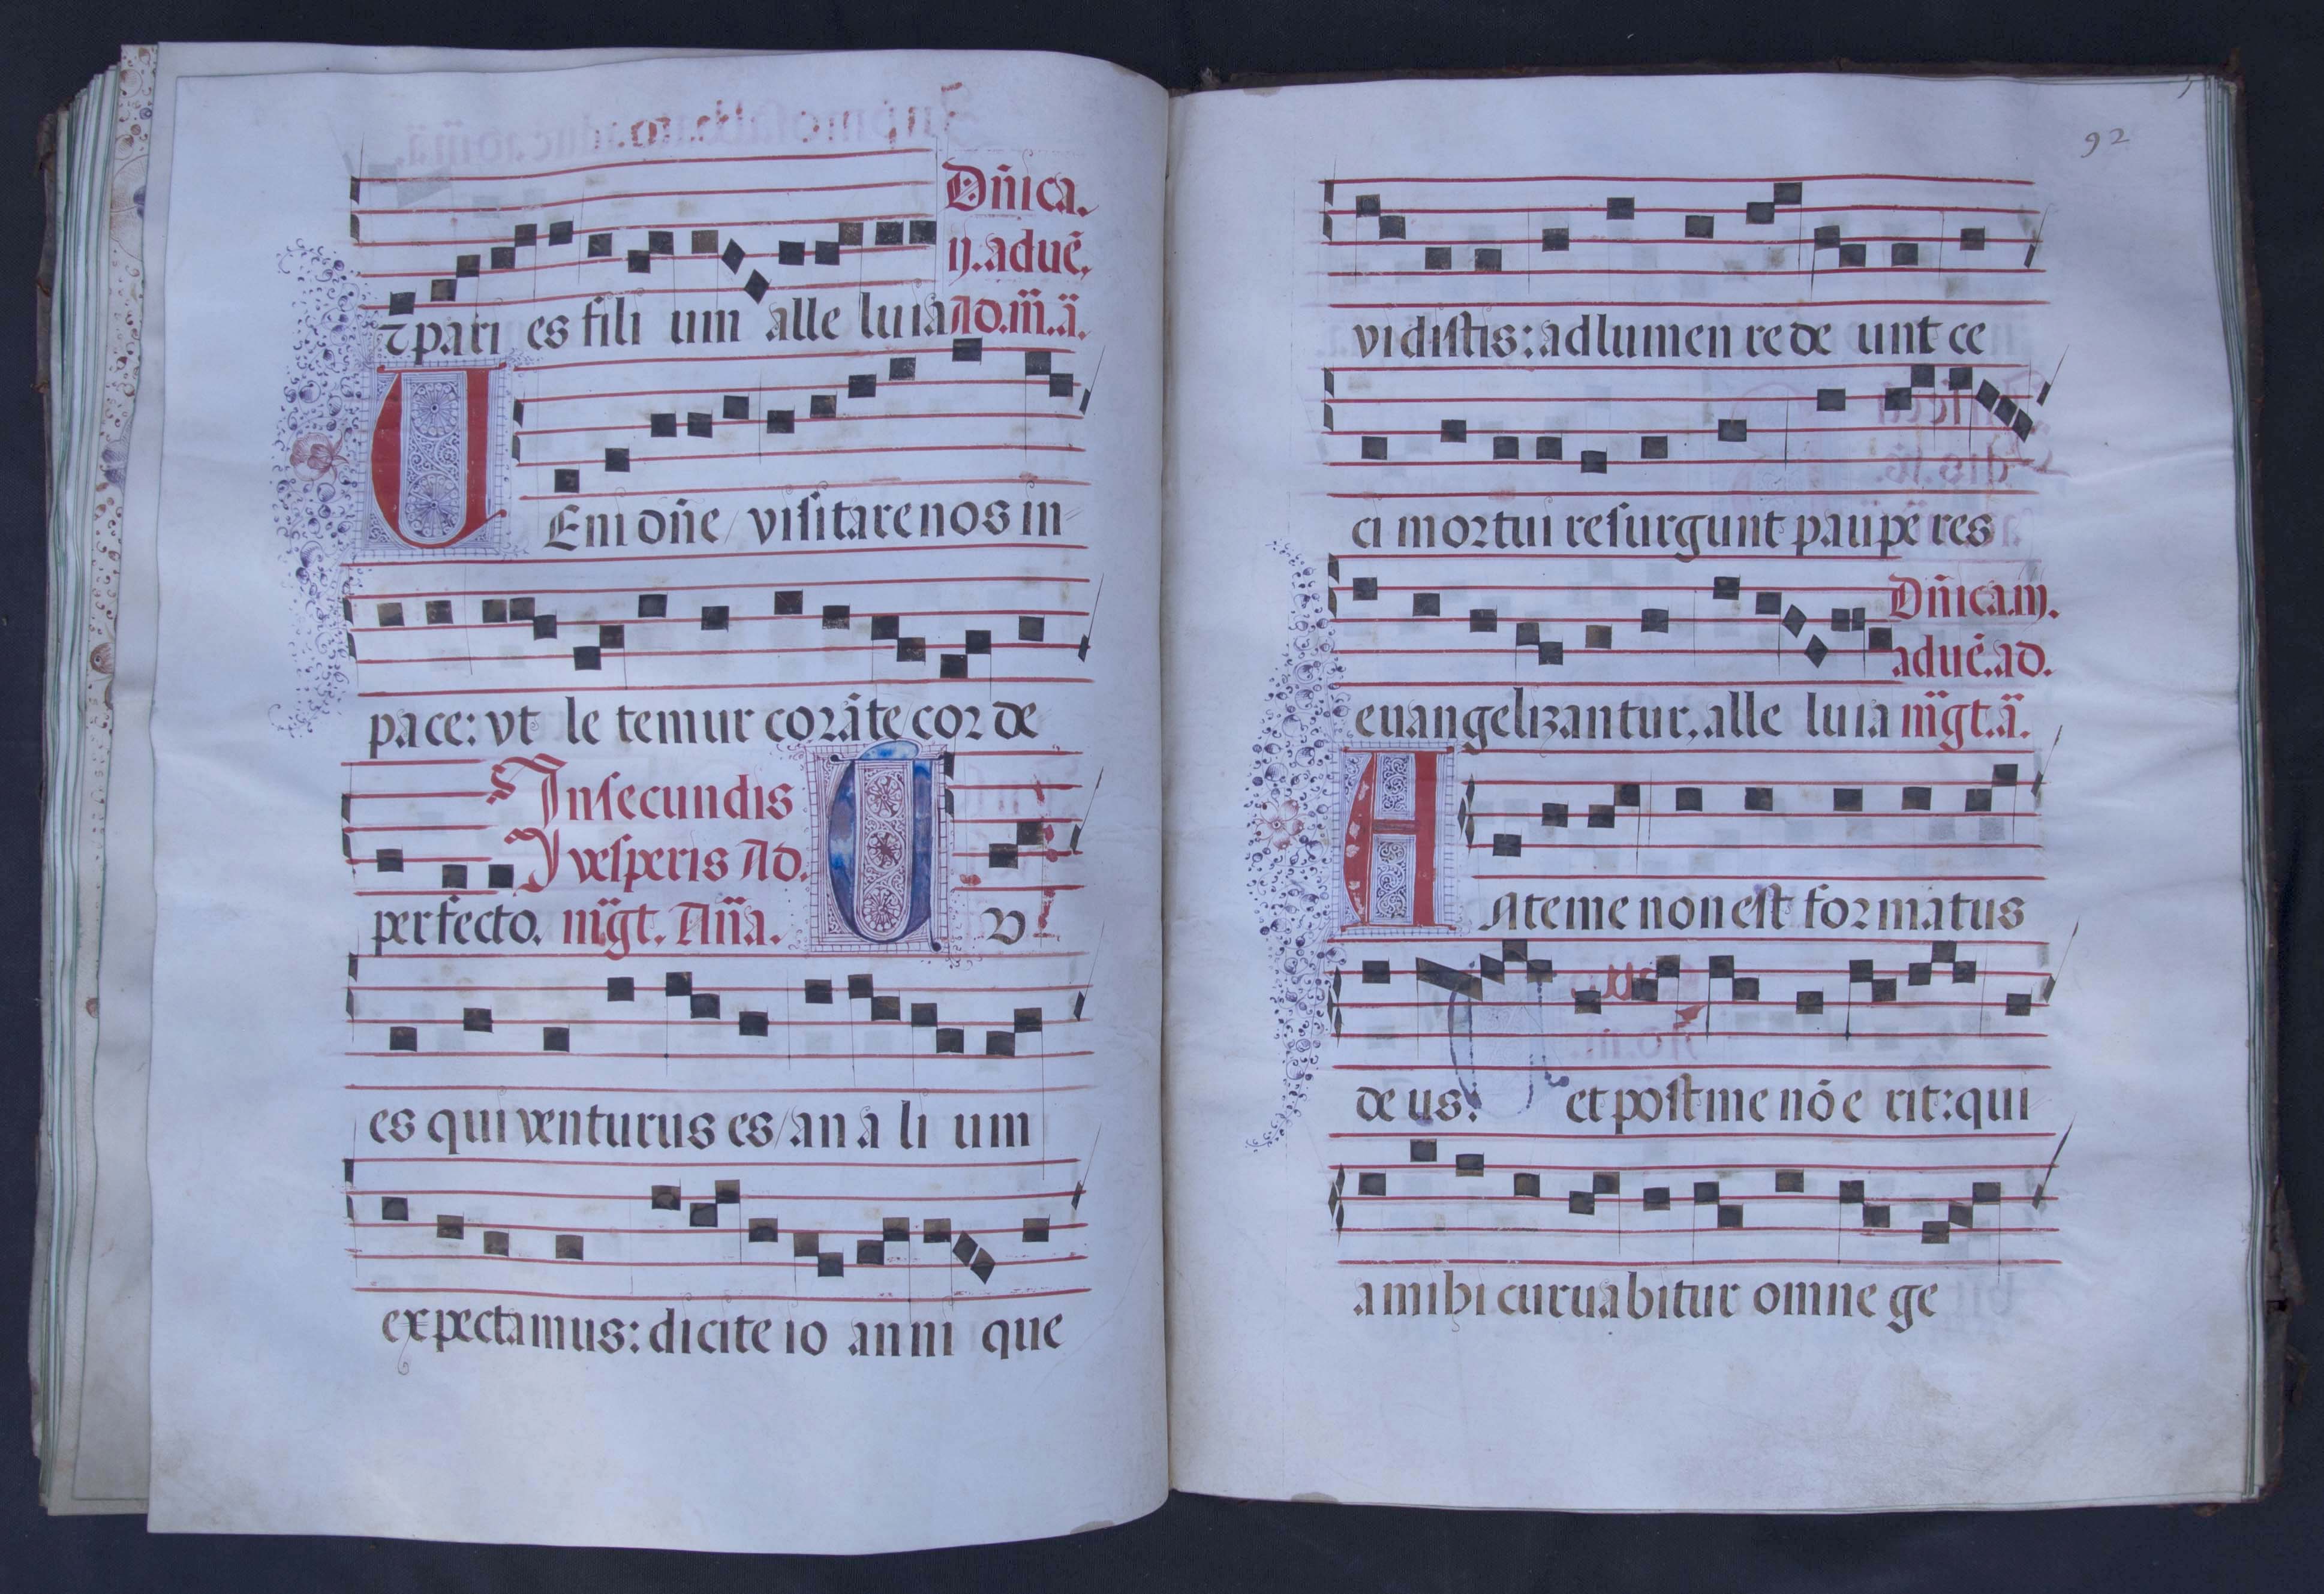 Dñica.
ij. aduẽ.
⁊ pari es fili um alle luia Ad. m̃. ã.
VEni dñe / visitare nos in
pa ce: vt le temur corã te cor de
In secundis
vesperis Ad.
perfecto. m̃gt. Añã. TV
es qui venturus es / an a li um
expectamus: dicite io anni que
92
vidistis: ad lumen re de unt ce
ci mortui resurgunt paupe res
Dñica. iij.
aduẽ. ad.
euangelizantur, alle luia m̃gt. ã.
ANte me non est formatus
de us: et post me nõ e rit: qui
a mihi curuabitur omne ge